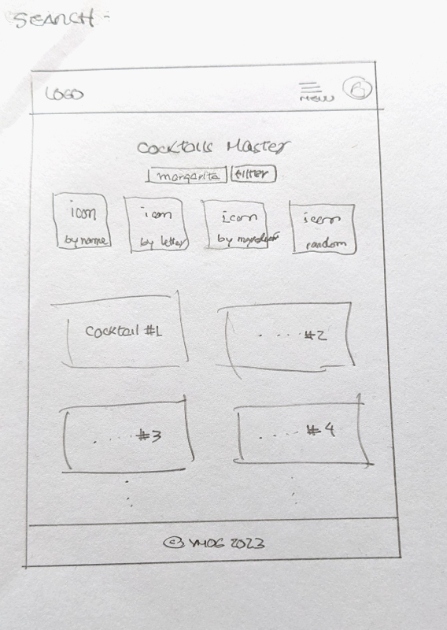 SEARCH -
LOGO MENU
Cocktails Master
margarita filter
icon icon icon icon
by name by letter by ingredient random
Cocktail #1 .... #2
.... #3 .... #4
© YMOG 2023